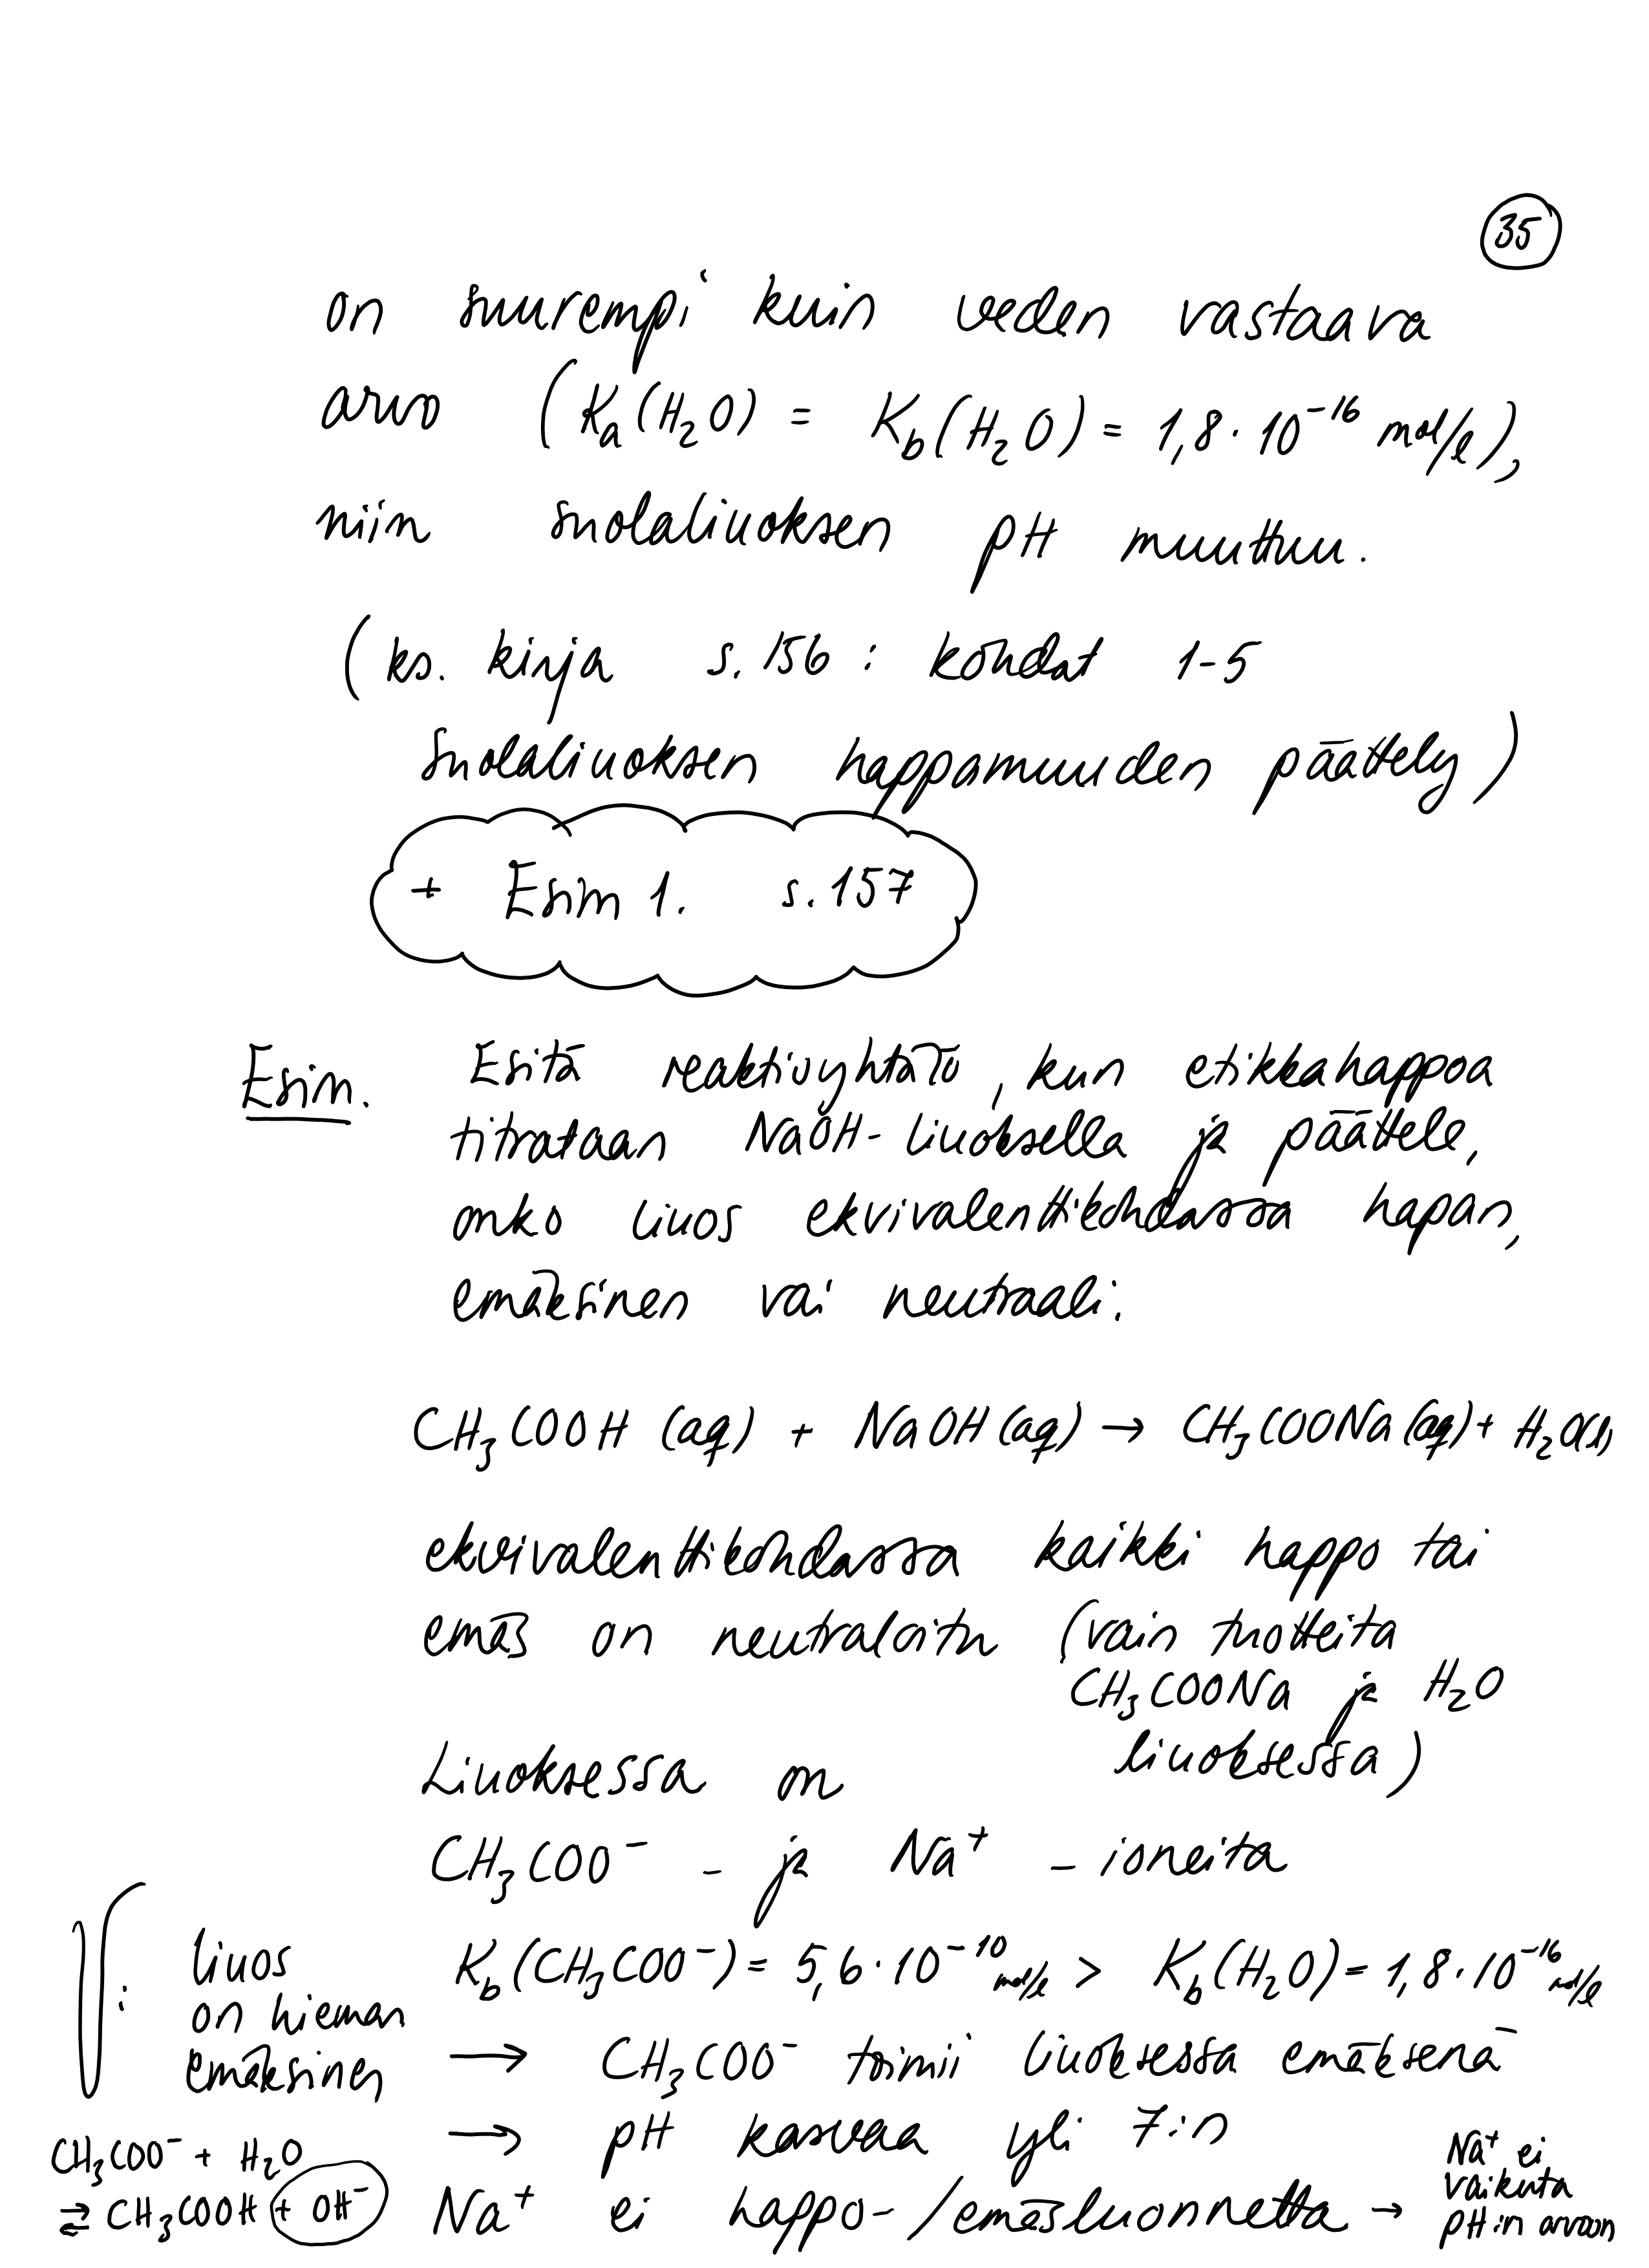 35
on suurempi kuin veden vastaava
arvo (Ka(H₂O) = Kb(H₂O) = 1,8·10⁻¹⁶ mol/l),
niin suolaliuoksen pH muuttuu.
(ks. kirja s.156 : kohdat 1-5
suolaliuoksen happamuuden päättely)
+ Esim 1. s.157
Esim. Esitä reaktioyhtälö, kun etikkahappoa
titrataan NaOH- liuoksella ja päättele,
onko liuos ekvivalenttikohdassa hapan,
emäksinen vai neutraali.
CH₃COOH (aq) + NaOH (aq) → CH₃COONa (aq) + H₂O(l)
ekvivalenttikohdassa kaikki happo tai
emäs on neutraloitu (vain tuotteita
CH₃COONa ja H₂O
liuoksessa)
Liuoksessa on
CH₃COO⁻ - ja Na⁺ - ioneita
Kb(CH₃COO⁻) = 5,6·10⁻¹⁰ mol/l > Kb(H₂O) = 1,8·10⁻¹⁶ mol/l
→ CH₃COO⁻ toimii liuoksessa emäksenä
→ pH kasvaa yli 7:n
Na⁺ ei happo-/emäsluonnetta → Na⁺ ei
vaikuta
pH:n arvoon
V: liuos
on hieman
emäksinen
CH₃COO⁻ + H₂O
⇌ CH₃COOH + OH⁻